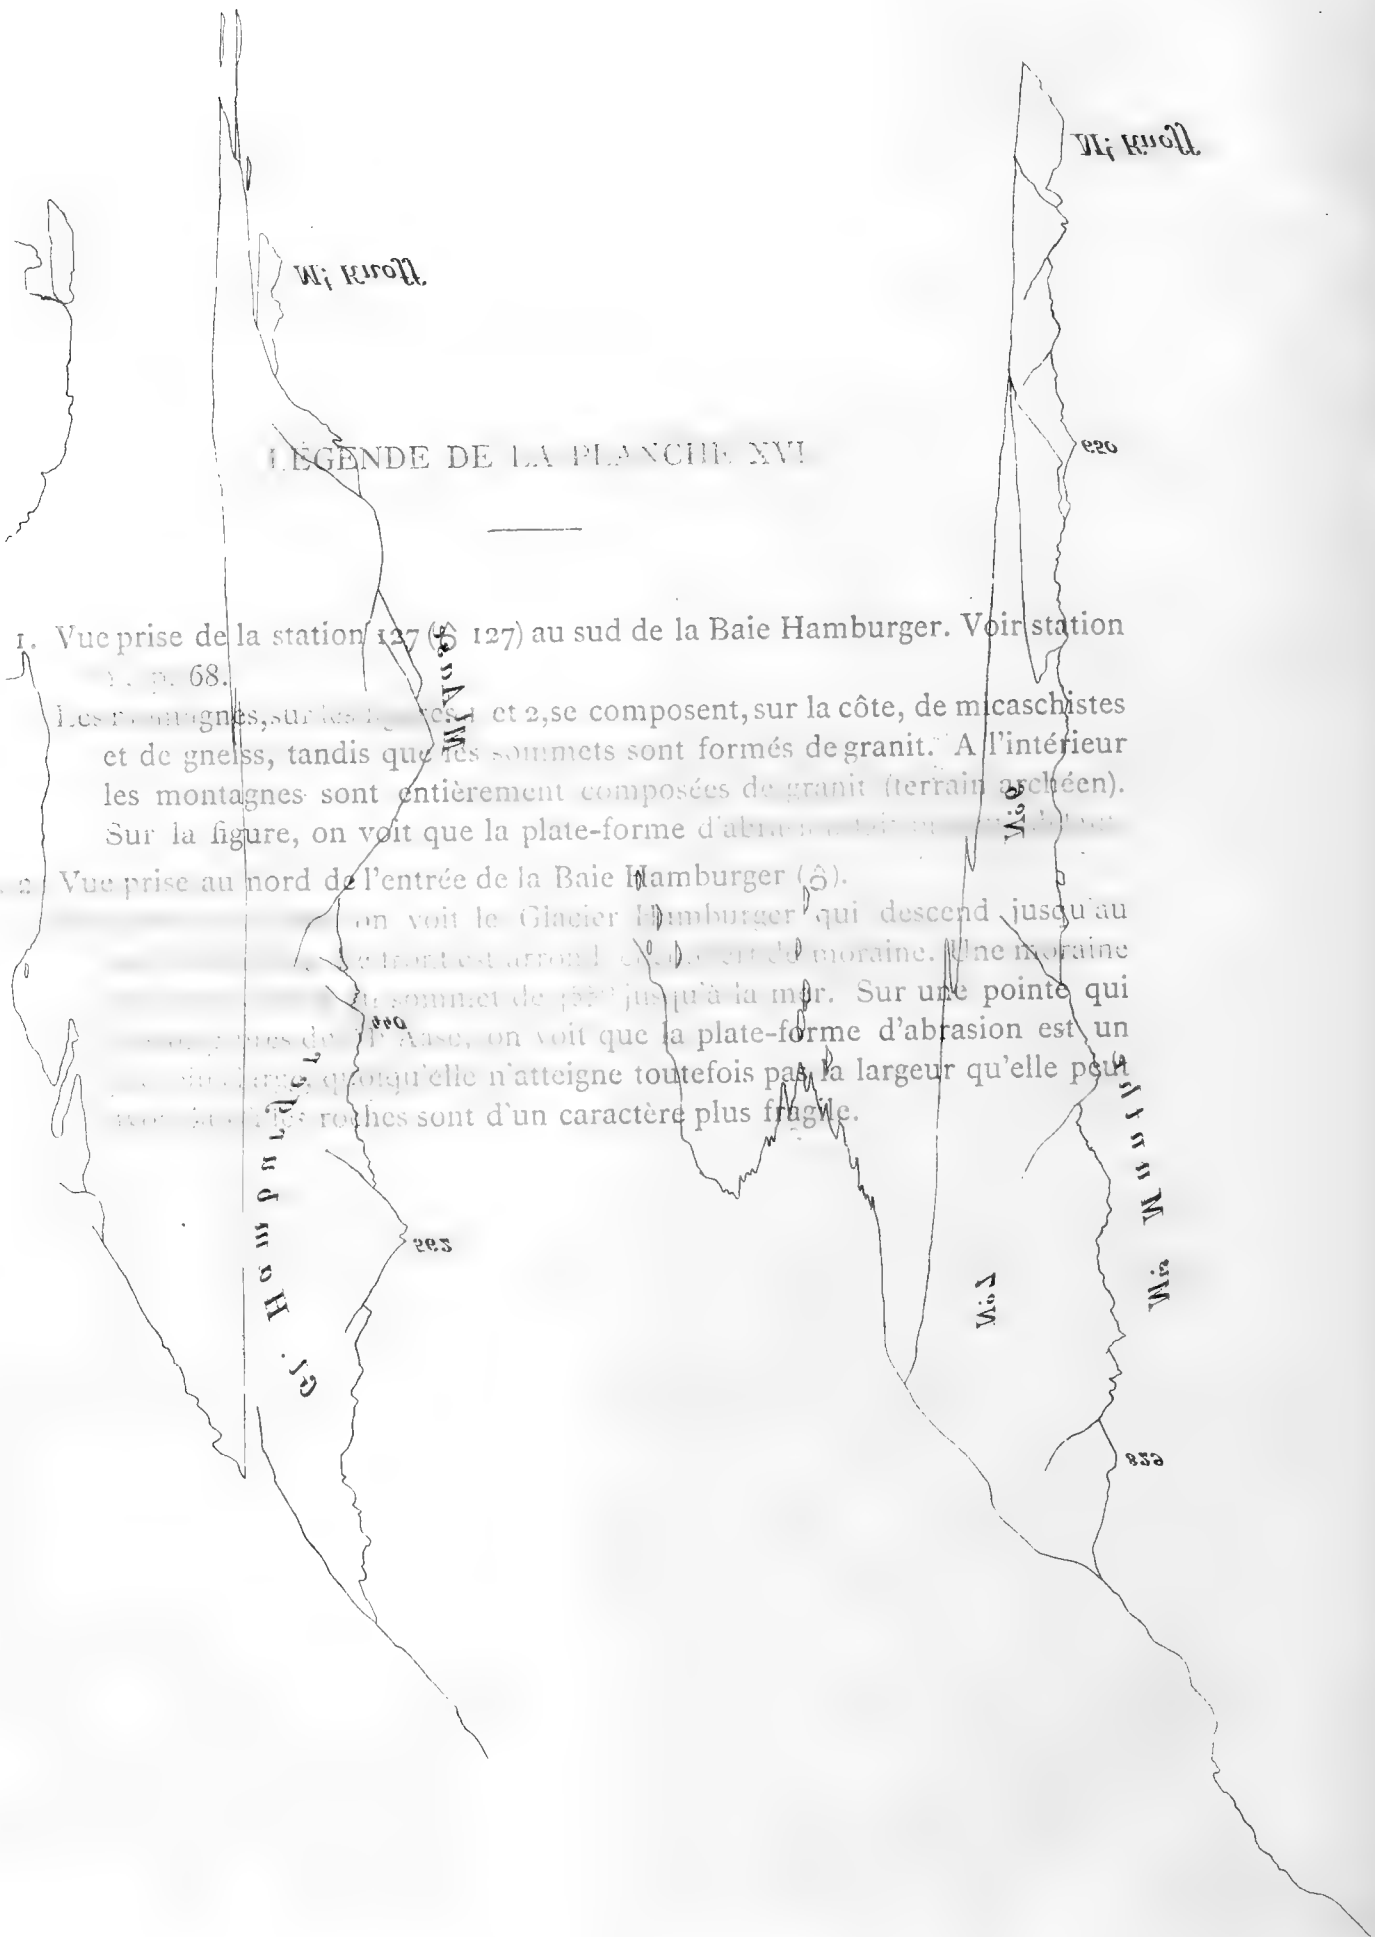 LÉGENDE DE LA PLANCHE XVI
1. Vue prise de la station 127 (ô 127) au sud de la Baie Hamburger. Voir station
p. 68.
Les montagnes, sur les figures 1 et 2, se composent, sur la côte, de micaschistes
et de gneiss, tandis que les sommets sont formés de granit. A l'intérieur
les montagnes sont entièrement composées de granit (terrain archéen).
Sur la figure, on voit que la plate-forme
2 Vue prise au nord de l'entrée de la Baie Hamburger (ô).
on voit le Glacier Hamburger qui descend jusqu'au
front est arrondi moraine. Une moraine
sommet de jusqu'à la mer. Sur une pointe qui
Mt Aase, on voit que la plate-forme d'abrasion est un
quoiqu'elle n'atteigne toutefois pas la largeur qu'elle peut
roches sont d'un caractère plus fragile.
Mt Knoff
Mt Knoff
650
Mt Aase
No 6
440
Gl. Hamburger
562
No 7
Mts Munthe
829